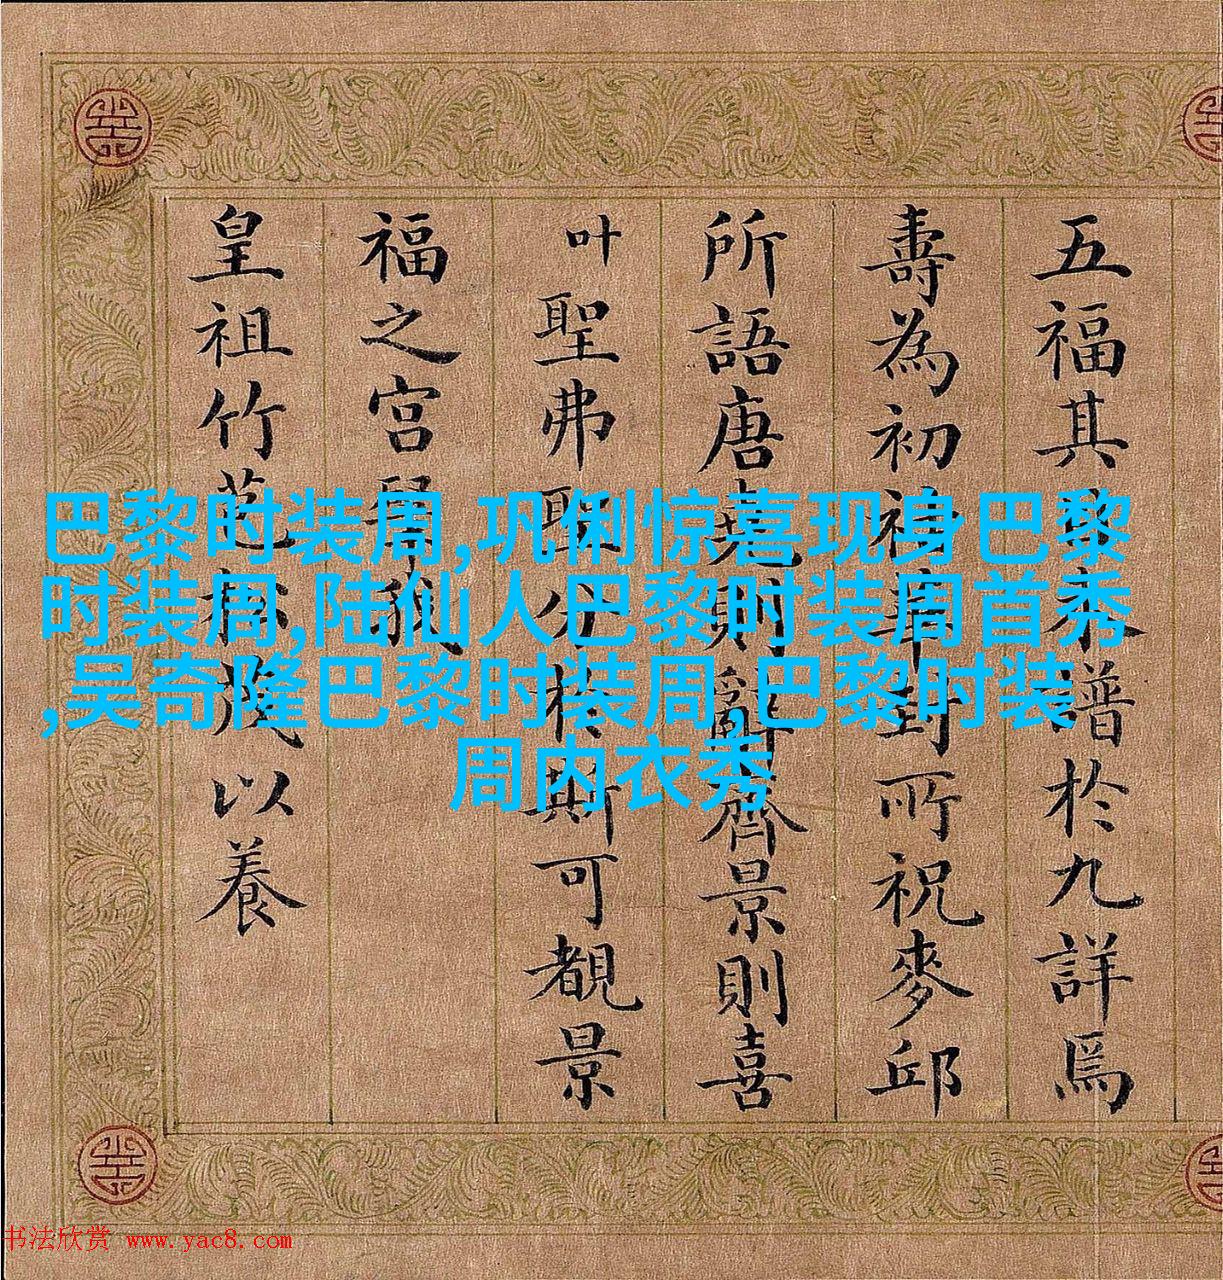 五福其譜於九詳焉
壽為初對所祝麥邱
所語唐堯則辭齊景則喜
叶聖弗聖於斯可覩景
福之宮
皇祖竹以養
巴黎时装周,巩俐惊喜现身巴黎
时装周,陆仙人巴黎时装周首秀
,吴奇隆巴黎时装周,巴黎时装
周内衣秀
书法欣赏 www.yac8.com